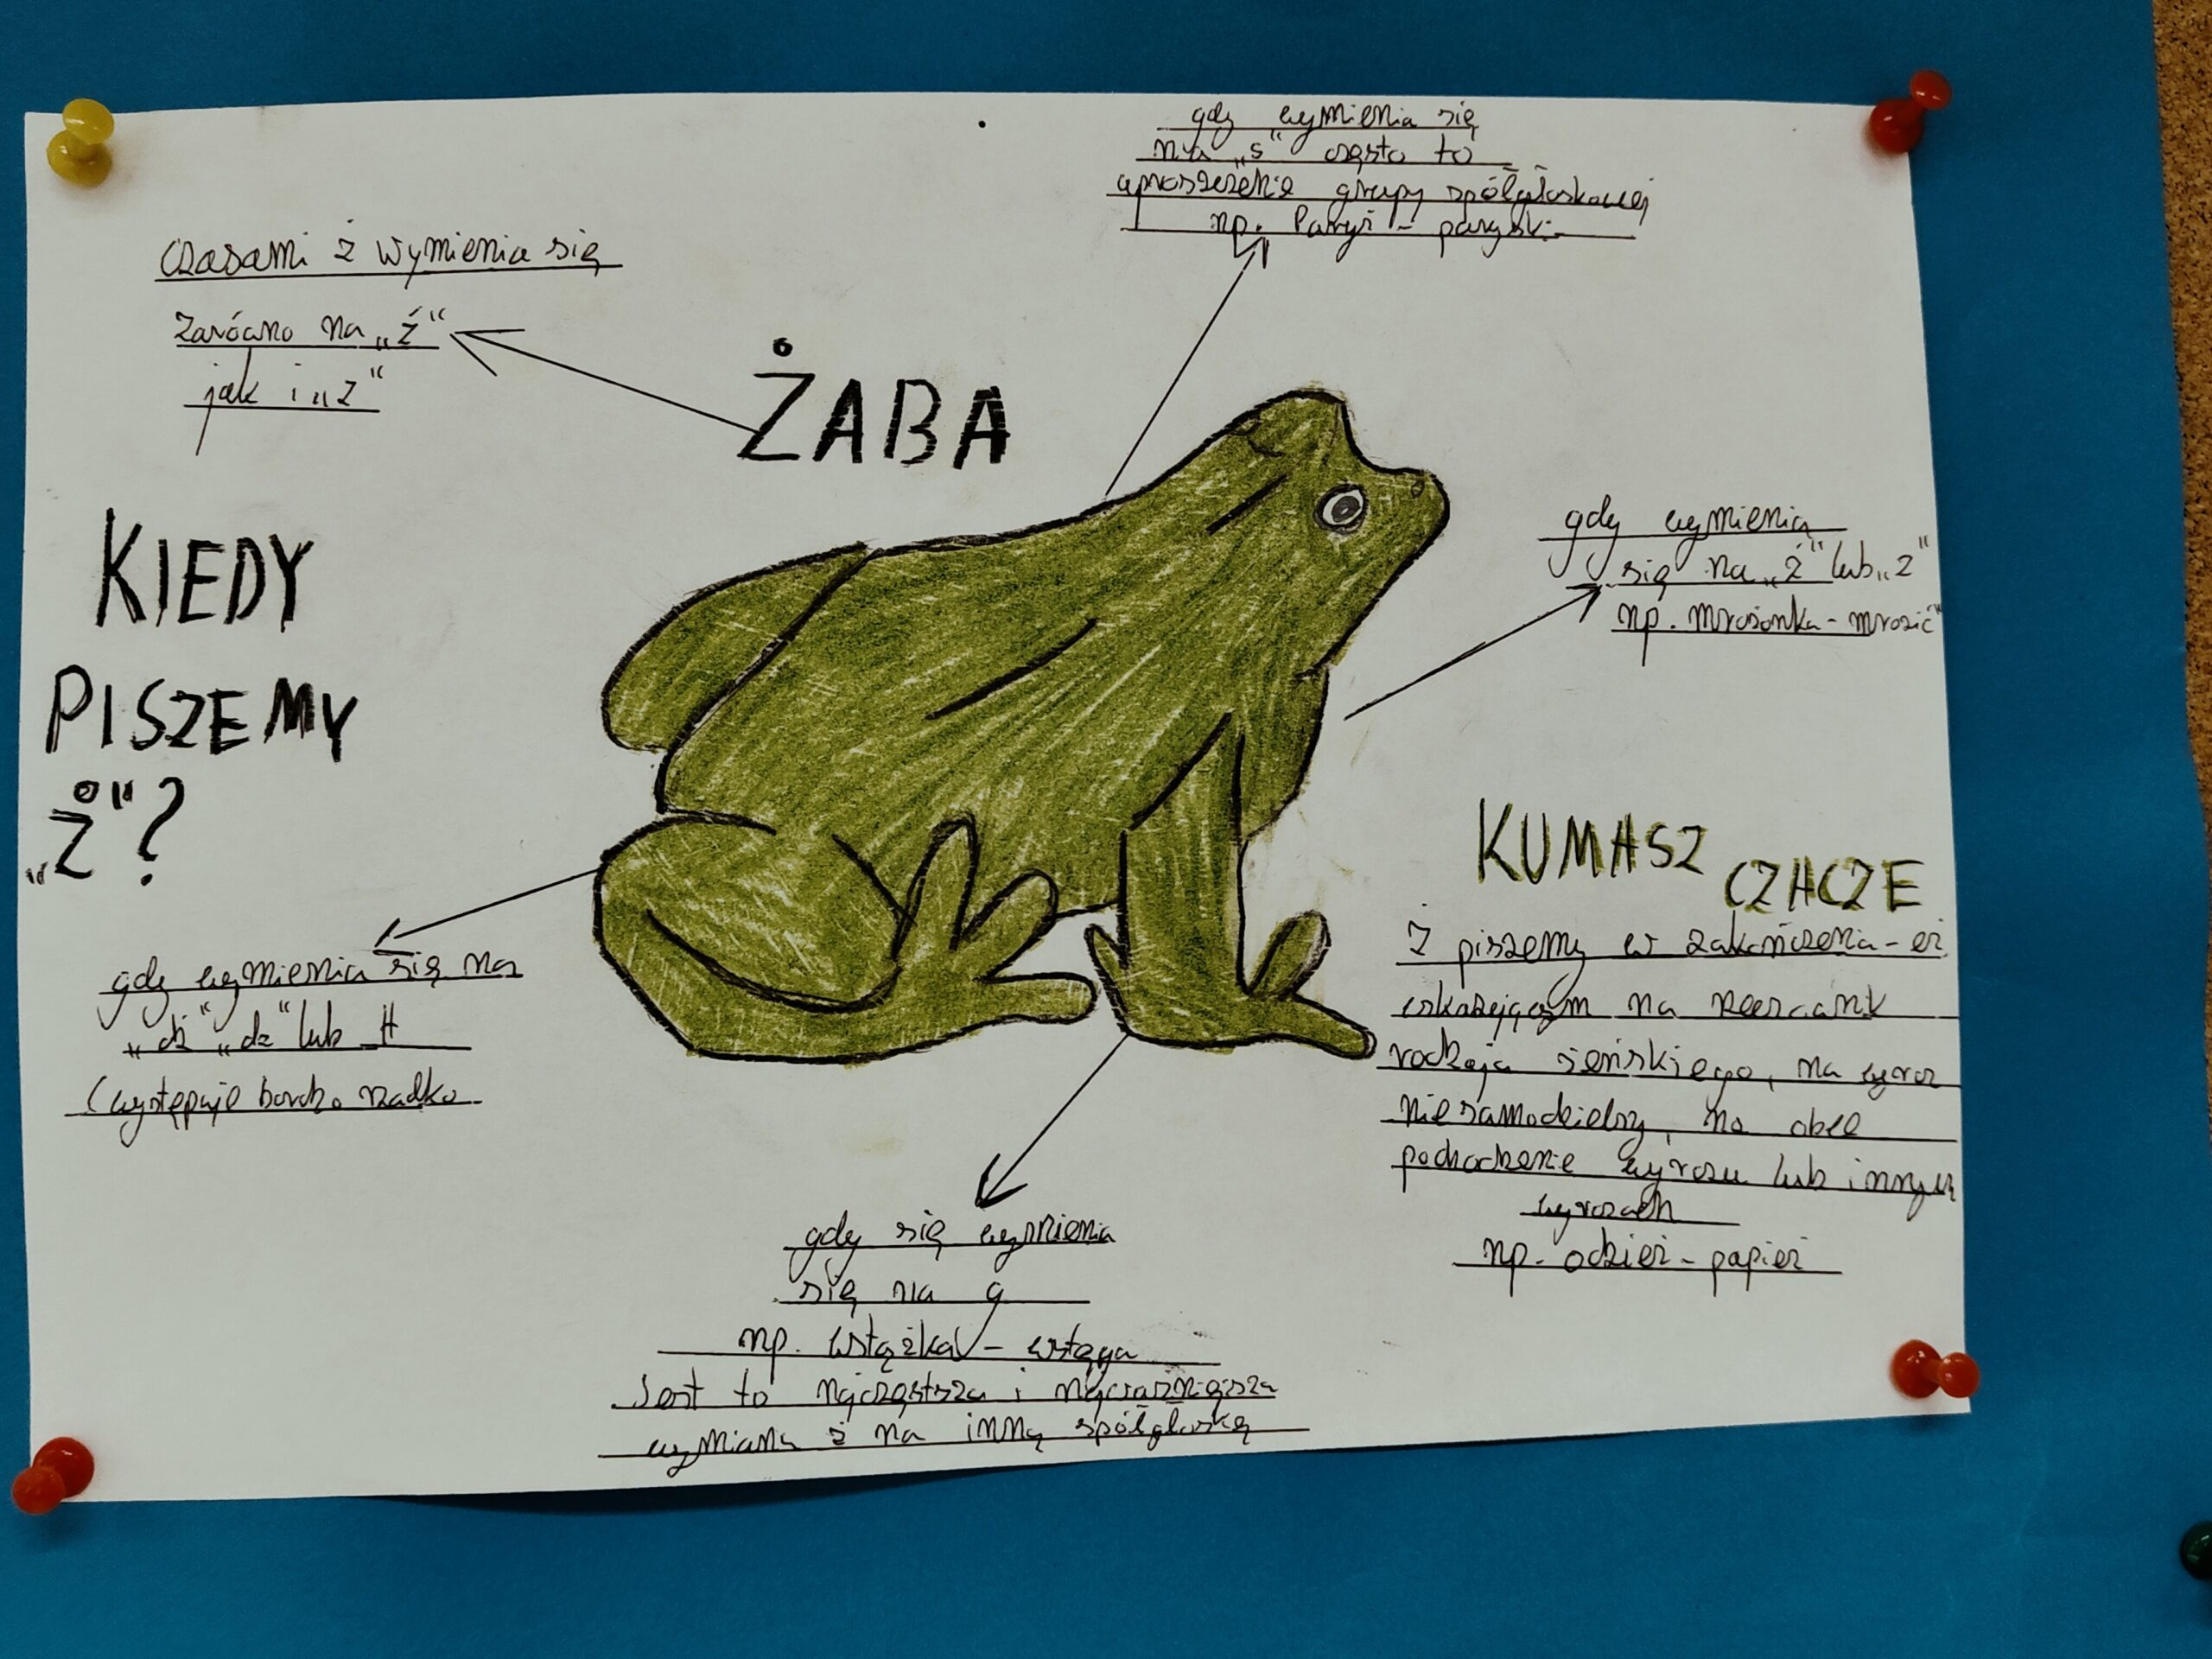 gdy wymienia się
na „s" często to
uproszczenie grupy spółgłoskowej
np. Paryż - paryski
Czasami ż wymienia się
zarówno na „ź"
jak i „z"
ŻABA
KIEDY
PISZEMY
„Ż"?
gdy wymienia
się na „ź" lub „z"
np. mrożonka - mrozić"
gdy wymienia się na
„dź" „dz" lub
(występuje bardzo rzadko
KUMASZ CZACZE
Ż piszemy w zakończenia -eż
wskazującym na rzeczownik
rodzaju żeńskiego, na wyraz
niesamodzielny, na obce
pochodzenie wyrazu lub innych
wyrazach
np. odzież - papież
gdy się wymienia
się na g
np. wstążka - wstęga
Jest to najczęstsza i najważniejsza
wymiana ż na inną spółgłoskę